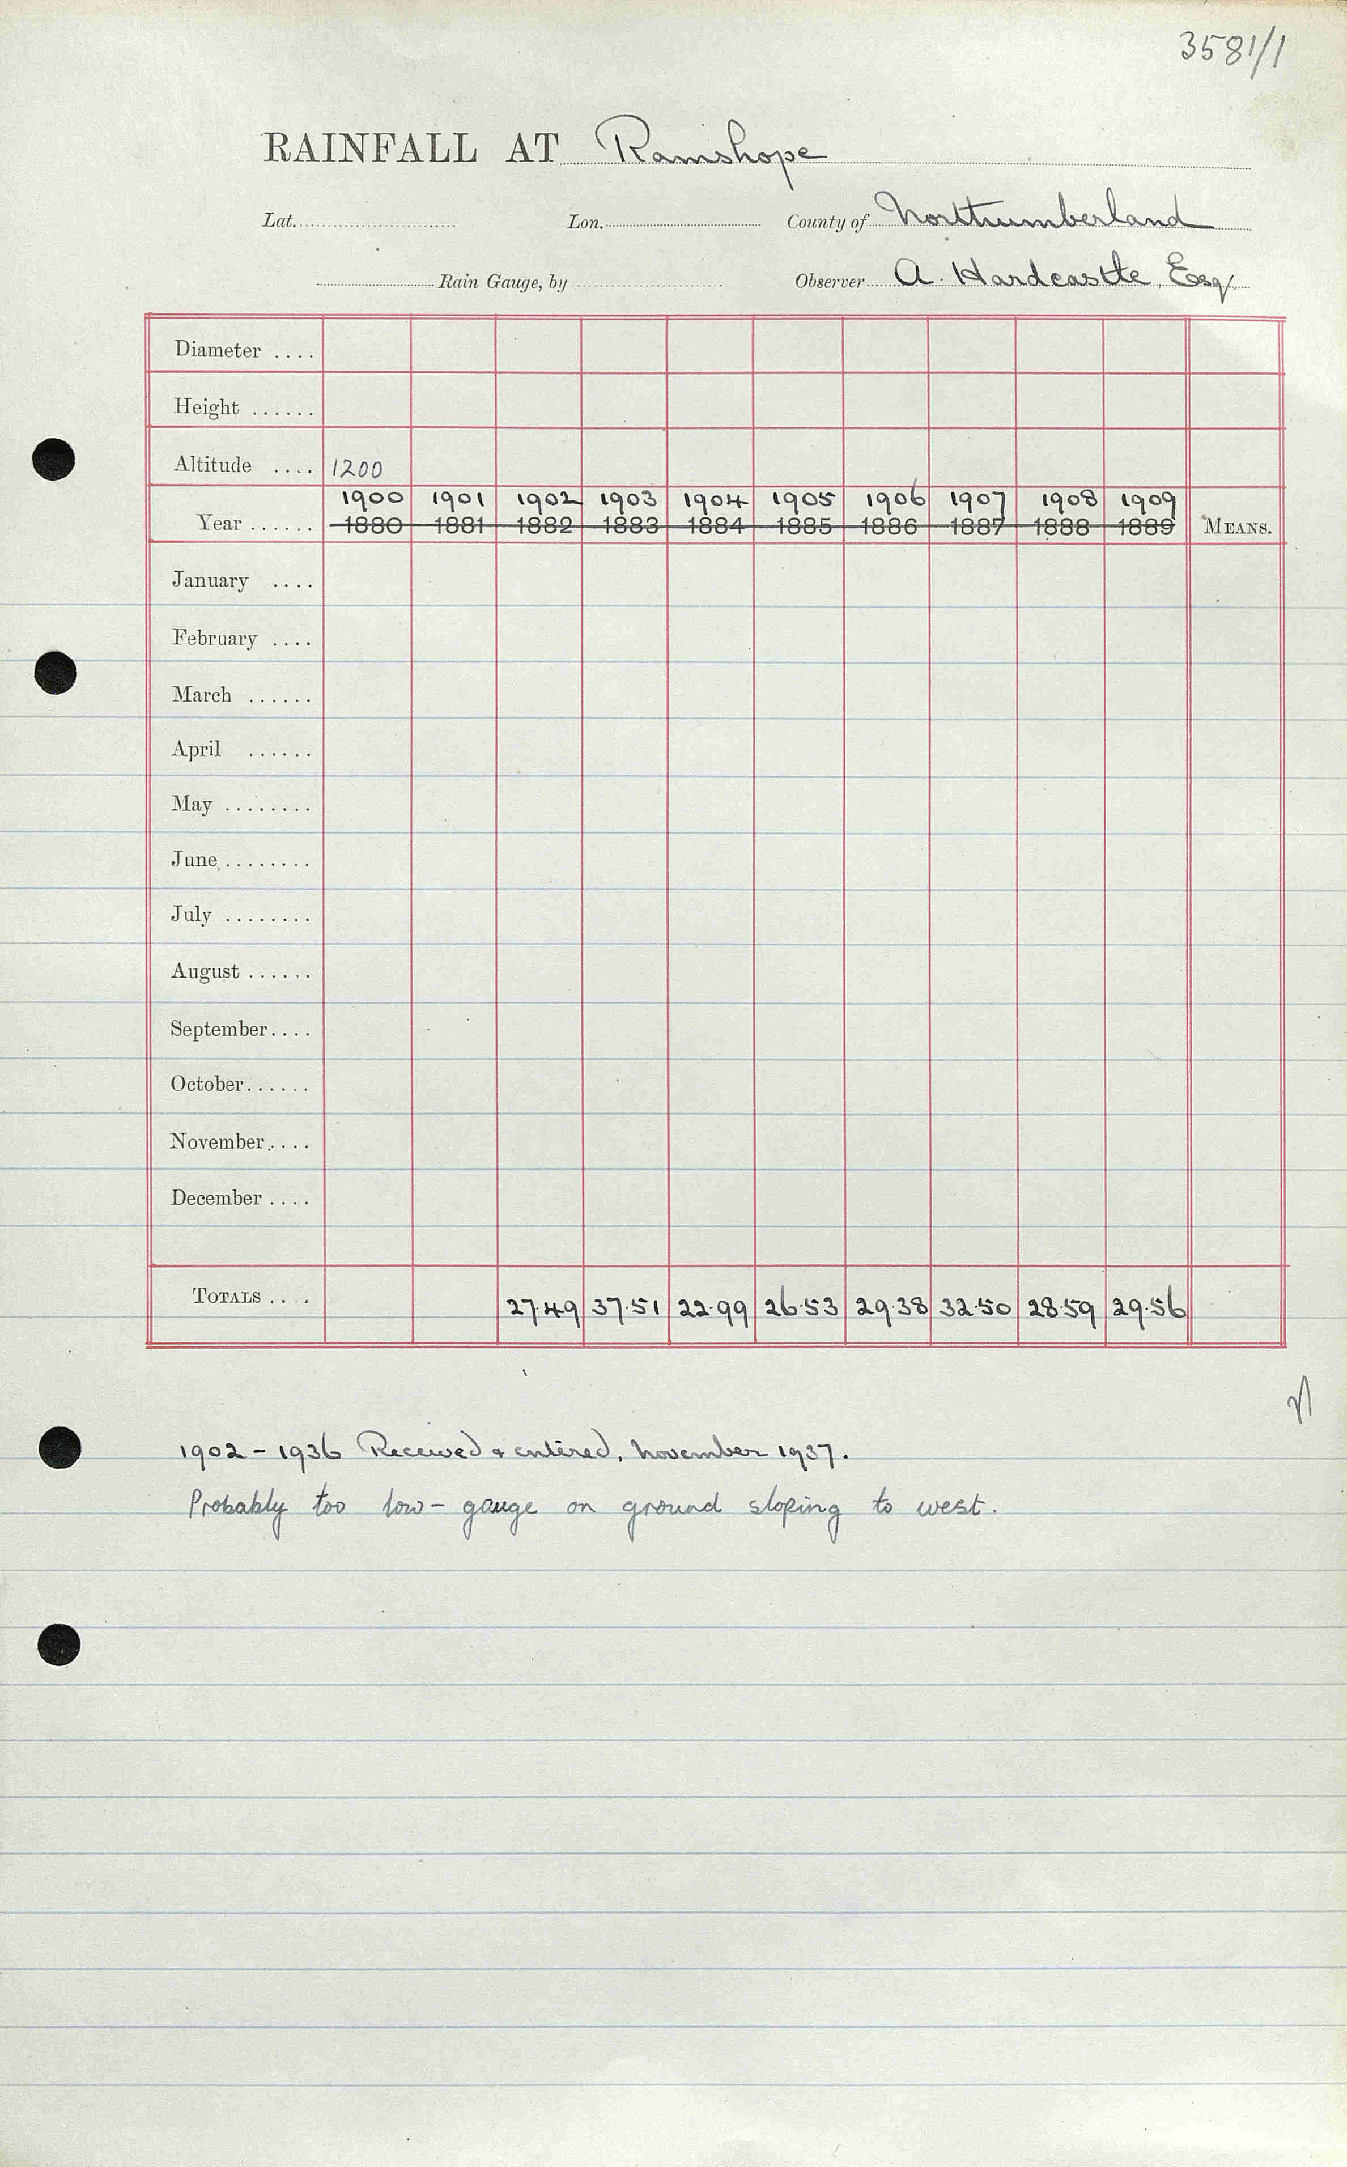 3581/1
RAINFALL AT Ramshope
Lat. Lon. County of Northumberland
Rain Gauge, by Observer A. Hardcastle, Esq.
Diameter ....
Height ......
Altitude .... 1200
1900 1901 1902 1903 1904 1905 1906 1907 1908 1909
Year ...... 1880 1881 1882 1883 1884 1885 1886 1887 1888 1889 MEANS.
January ....
February ....
March ......
April ......
May ........
June ........
July ........
August ......
September ....
October ......
November ....
December ....
TOTALS .... 27.49 37.51 22.99 26.53 29.38 32.50 28.59 29.56
1902 - 1936 Received & entered, November 1937.
Probably too low - gauge on ground sloping to west.